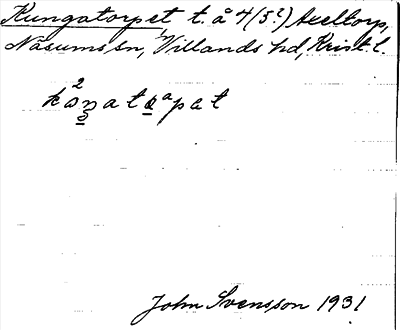 Kungatorpet t. å 4 (5?) Axeltorp,
Näsums sn, Villands hd, Krist. l.
John Svensson 1931